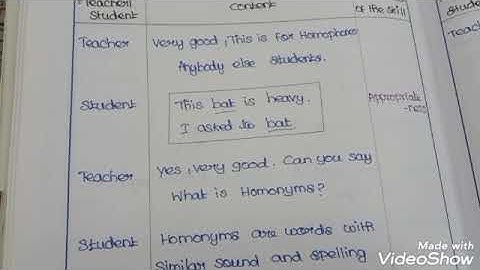 Teacher/
Student
Content
of the skill
Stude
Teacher
Very good, This is for Homophones
Anybody else students.
Teac
Student
This bat is heavy.
I asked to bat.
Appropriate
-ness
Teacher
Yes, very good. Can you say
What is Homonyms?
Student
Homonyms are words with
Similar sound and spelling
Made with
VideoShow